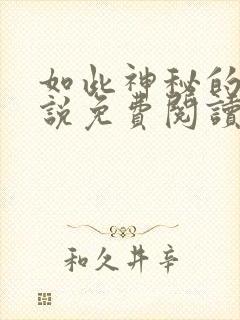 如此神秘的
說免費閱讀
和久井辛